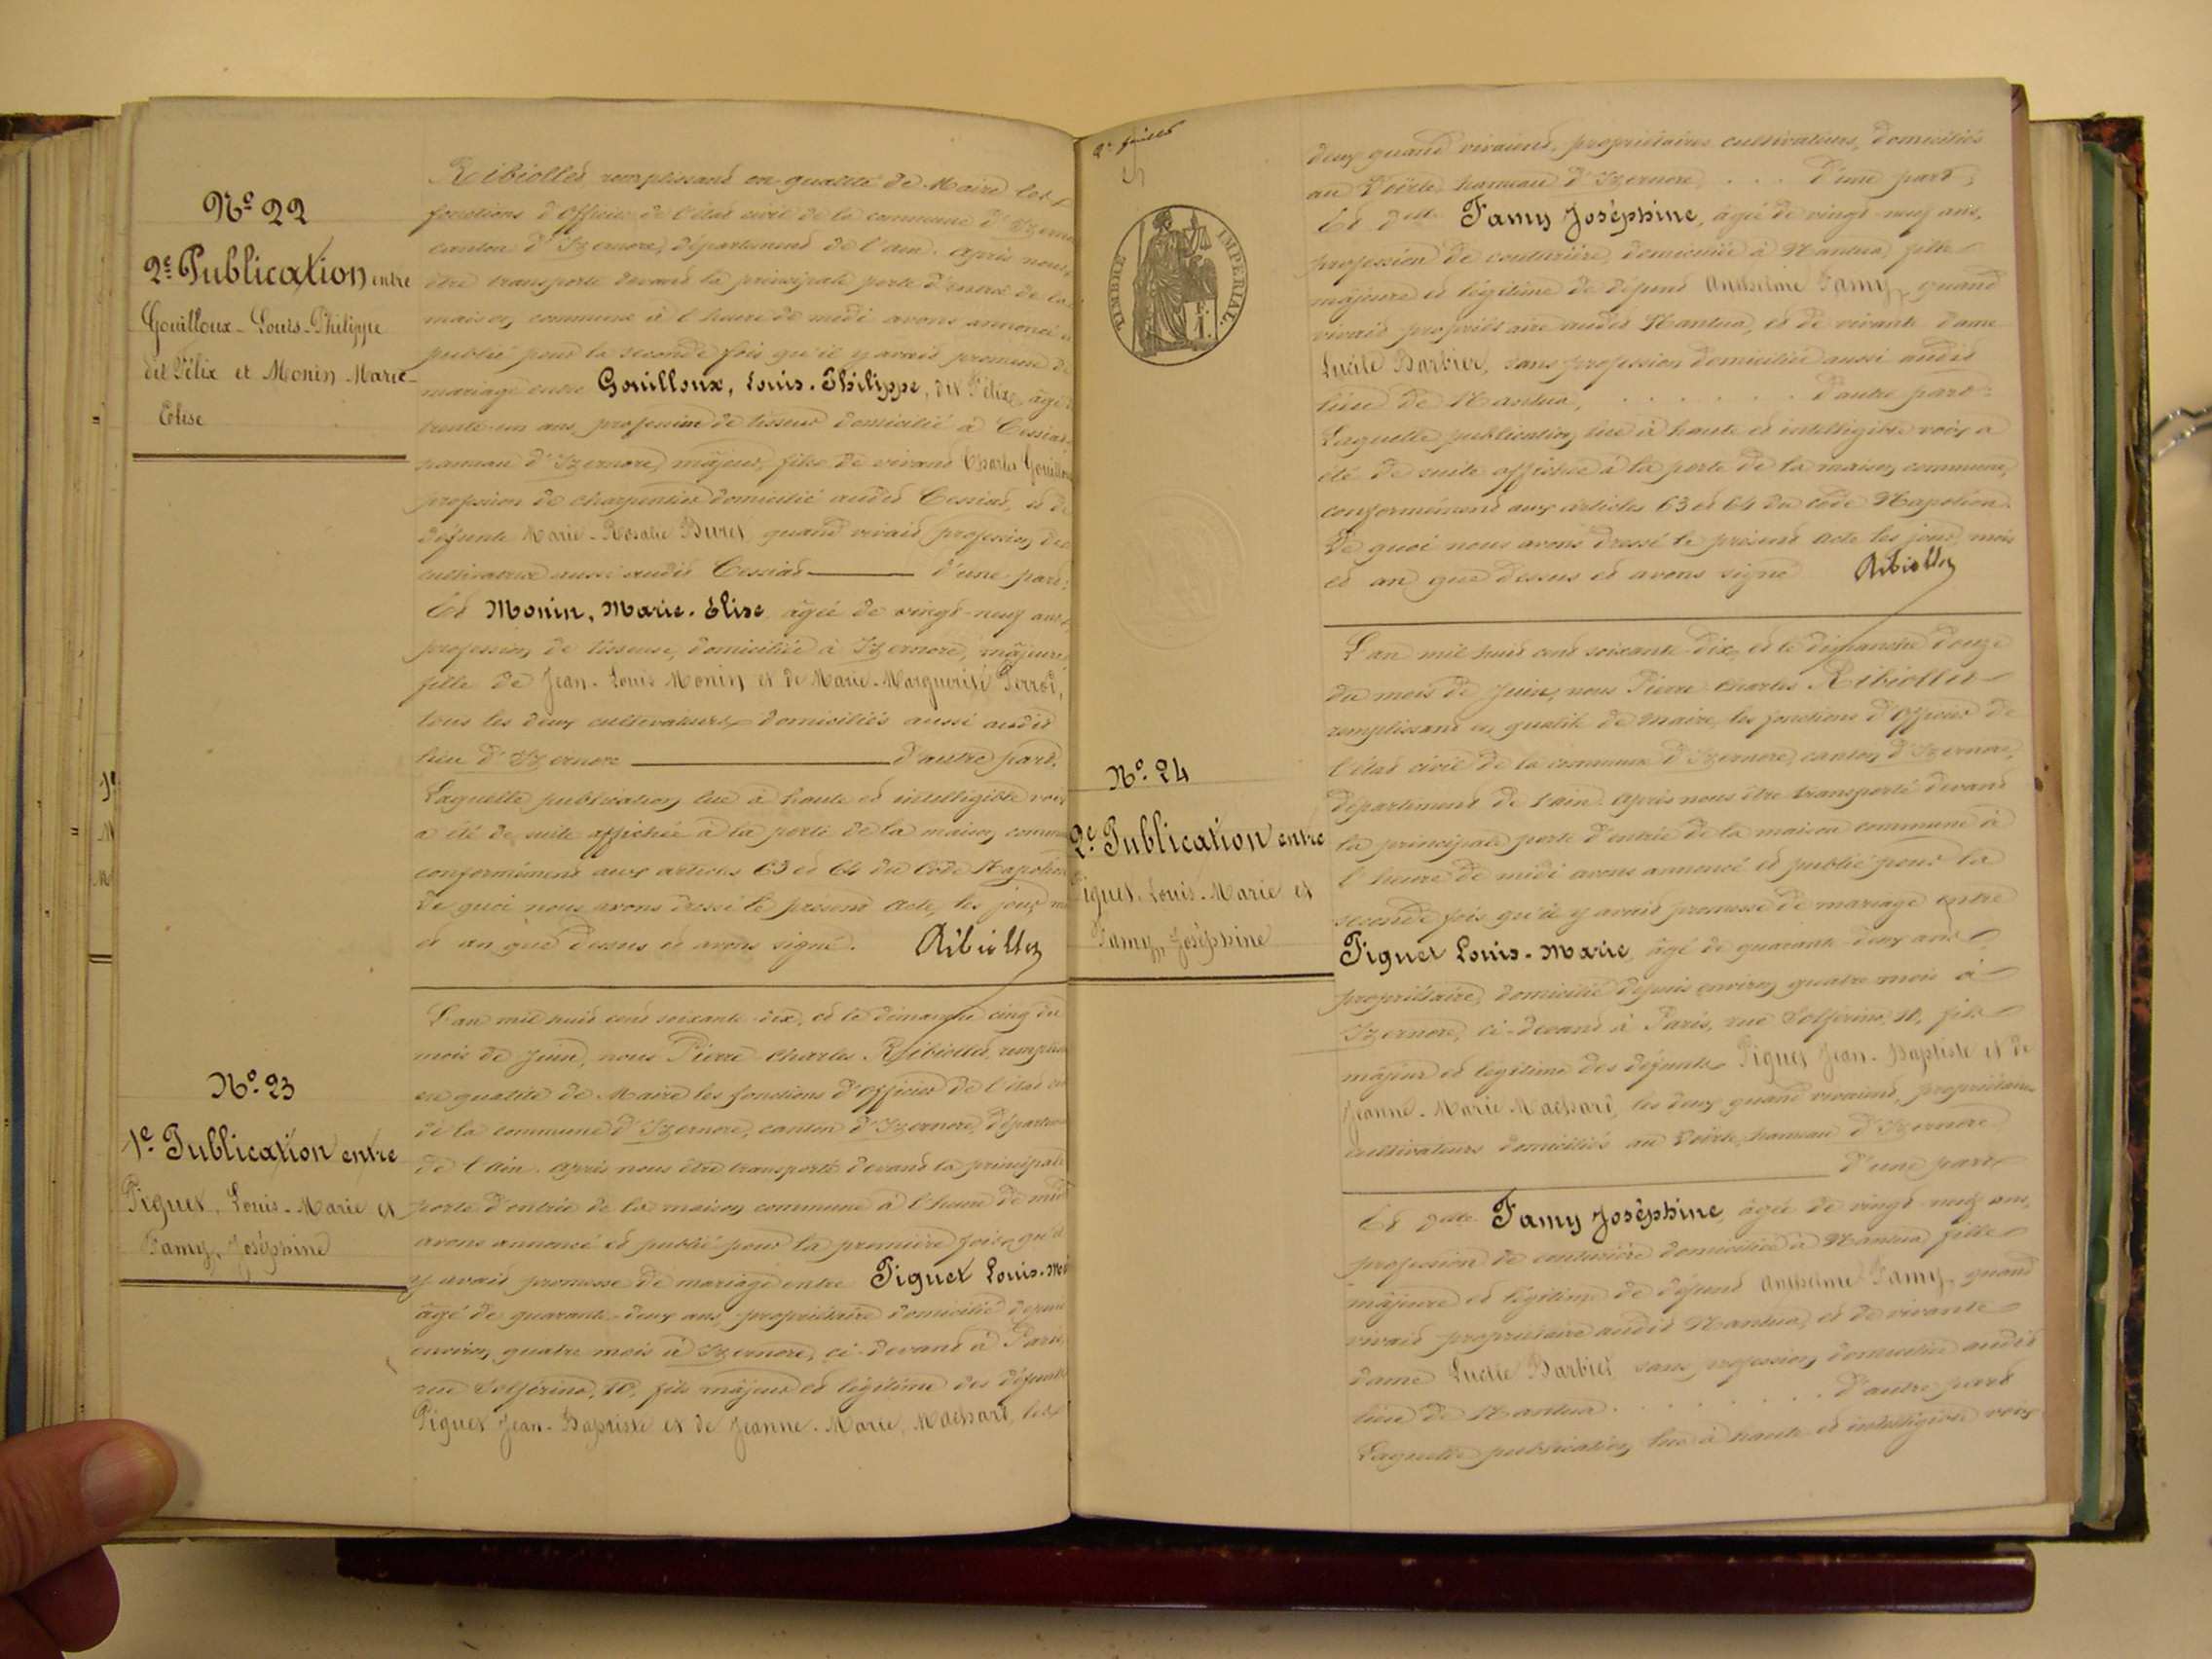 Nº 22
2e Publication entre
Gouilloux - Louis - Philippe
dit Félix et Monin Marie -
Elise
Ribiollet remplissant en qualité de Maire les
fonctions d'Officier de l'état civil de la commune d'Izernore
canton d'Izernore, département de l'ain. Après nous
être transporté devant la principale porte d'entrée de la
maison commune à l'heure de midi avons annoncé et
publié pour la seconde fois qu'il y avait promesse de
mariage entre Gouilloux, Louis. Philippe, dit Félix, âgé
trente-un ans, profession de tisseur domicilié à Cessiat
hameau d'Izernore, majeur, fils de vivant Charles Gouilloux
profession de charpentier domicilié audit Cessiat, et de
défunte Marie - Rosalie Buret quand vivait profession de
cultivatrice aussi audit Cessiat d'une part:
Et Monin, Marie. Elise âgée de vingt-neuf ans,
profession de tisseuse, domiciliée à Izernore, majeure,
fille de Jean - Louis Monin et de Marie - Marguerite Perrod,
tous les deux cultivateurs domiciliés aussi audit
lieu d'Izernore d'autre part.
Laquelle publication lue à haute et intelligible voix
a été de suite affichée à la porte de la maison commune
conformément aux articles 63 et 64 du Code Napoléon
De quoi nous avons dressé le présent Acte, les jour, mois
et an que dessus et avons signé. Ribiollet
Nº 23
1e Publication entre
Piguet, Louis - Marie et
Famy, Joséphine
L'an mil huit cent soixante-dix, et le dimanche cinq du
mois de Juin, nous Pierre Charles Ribiollet, remplissant
en qualité de Maire les fonctions d'Officier de l'état civil
de la commune d'Izernore, canton d'Izernore, département
de l'Ain. Après nous être transporté devant la principale
porte d'entrée de la maison commune à l'heure de midi
avons annoncé et publié pour la première fois qu'il
y avait promesse de mariage entre Piguet Louis - Marie
âgé de quarante-deux ans, propriétaire domicilié depuis
environ quatre mois à Izernore, ci-devant à Paris,
rue Solférino, 10, fils majeur et légitime des défunts
Piguet Jean - Baptiste et de Jeanne - Marie, Machard, les
2e feuillet
TIMBRE IMPERIAL.
deux quand vivaient, propriétaires cultivateurs, domiciliés
au Voërle hameau d'Izernore . . . d'une part;
Et delle Famy Joséphine, âgée de vingt-neuf ans,
profession de couturière, domiciliée à Nantua, fille
majeure et légitime de défunt Anthelme Famy, quand
vivait propriétaire audit Nantua, et de vivante dame
Lucile Barbier, sans profession domiciliée aussi audit
lieu de Nantua, . . . . . . d'autre part:
Laquelle publication lue à haute et intelligible voix a
été de suite affichée à la porte de la maison commune,
conformément aux articles 63 et 64 du Code Napoléon.
De quoi nous avons dressé le présent Acte les jour, mois
et an que dessus et avons signé Ribiollet
Nº 24
2e Publication entre
Piguet, Louis - Marie et
Famy, Joséphine
L'an mil huit cent soixante-dix, et le dimanche douze
du mois de Juin, nous Pierre Charles Ribiollet
remplissant en qualité de Maire, les fonctions d'Officier de
l'état civil de la commune d'Izernore, canton d'Izernore,
département de l'ain. Après nous être transporté devant
la principale porte d'entrée de la maison commune à
l'heure de midi avons annoncé et publié pour la
seconde fois qu'il y avait promesse de mariage entre
Piguet Louis - Marie, âgé de quarante-deux ans
propriétaire, domicilié depuis environ quatre mois à
Izernore, ci-devant à Paris, rue Solférino, 10, fils
majeur et légitime des défunts Piguet Jean - Baptiste et de
Jeanne - Marie Machard, les deux quand vivaient, propriétaires
cultivateurs domiciliés au Voërle, hameau d'Izernore
d'une part
Et delle Famy Joséphine, âgée de vingt-neuf ans,
profession de couturière domiciliée à Nantua, fille
majeure et légitime de défunt Anthelme Famy, quand
vivait propriétaire audit Nantua, et de vivante
dame Lucile Barbier, sans profession, domiciliée audit
lieu de Nantua . . . . . . d'autre part
Laquelle publication lue à haute et intelligible voix